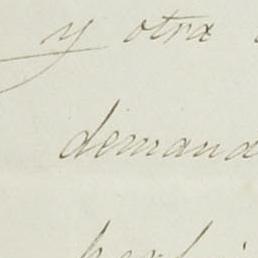 y otra
demanda